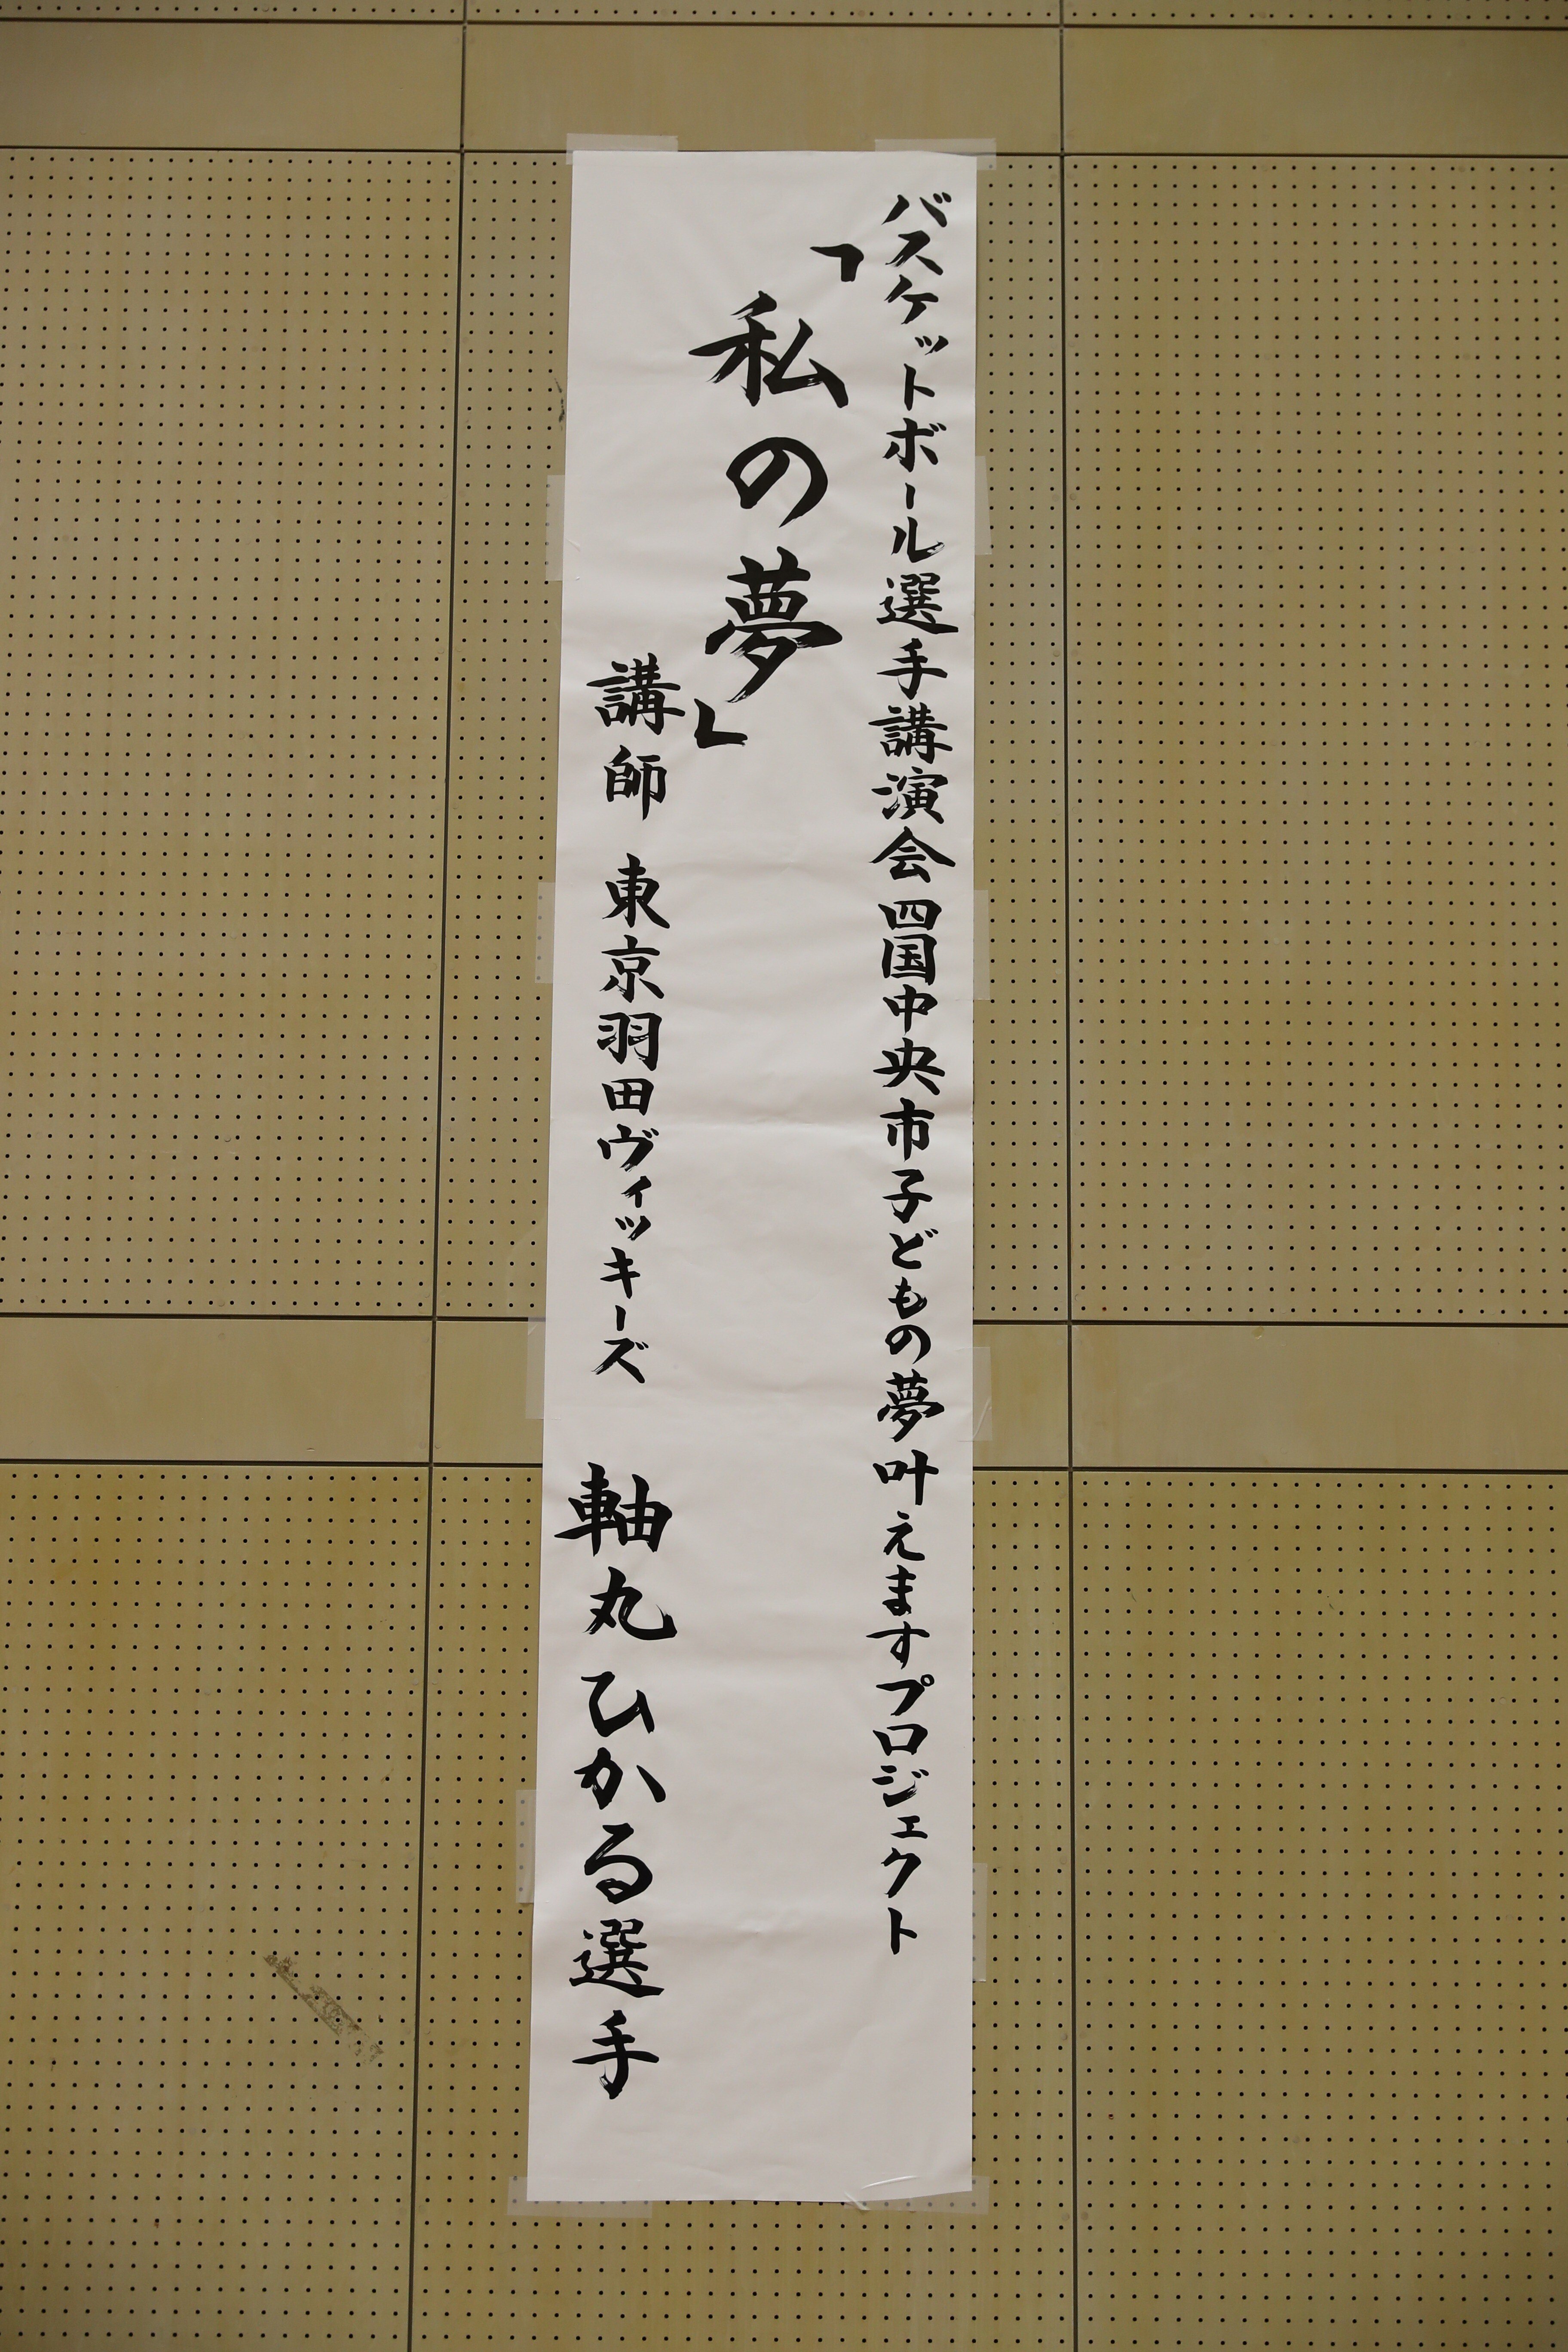 バスケットボール選手講演会四国中央市子どもの夢叶えますプロジェクト
「私の夢」
講師 東京羽田ヴィッキーズ 軸丸ひかる選手